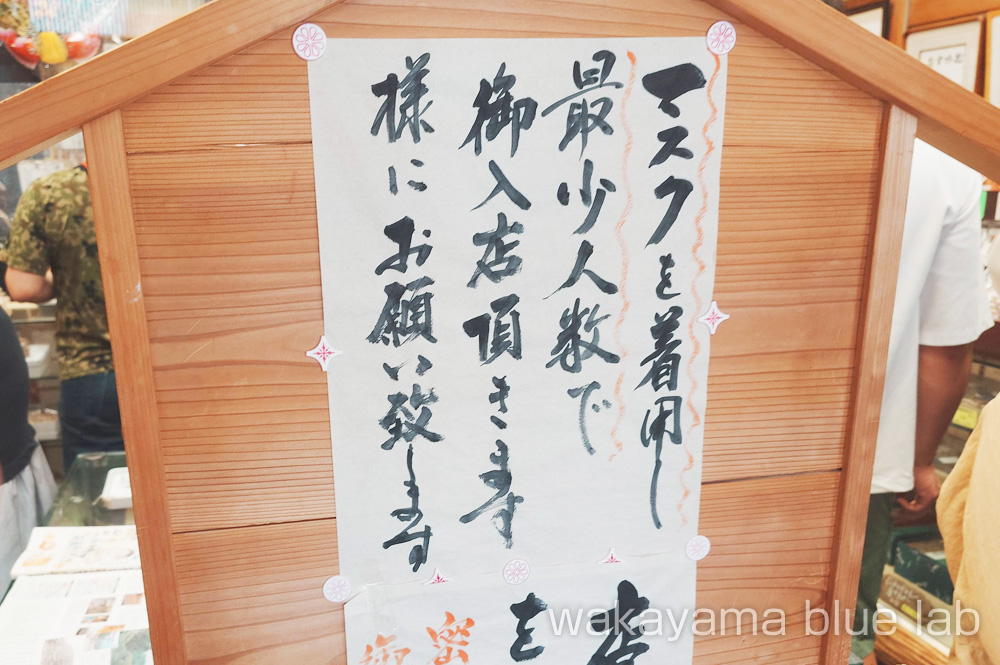 マスクを着用し
最少人数で
御入店頂きます
様にお願い致します
店
を
密
wakayama blue lab